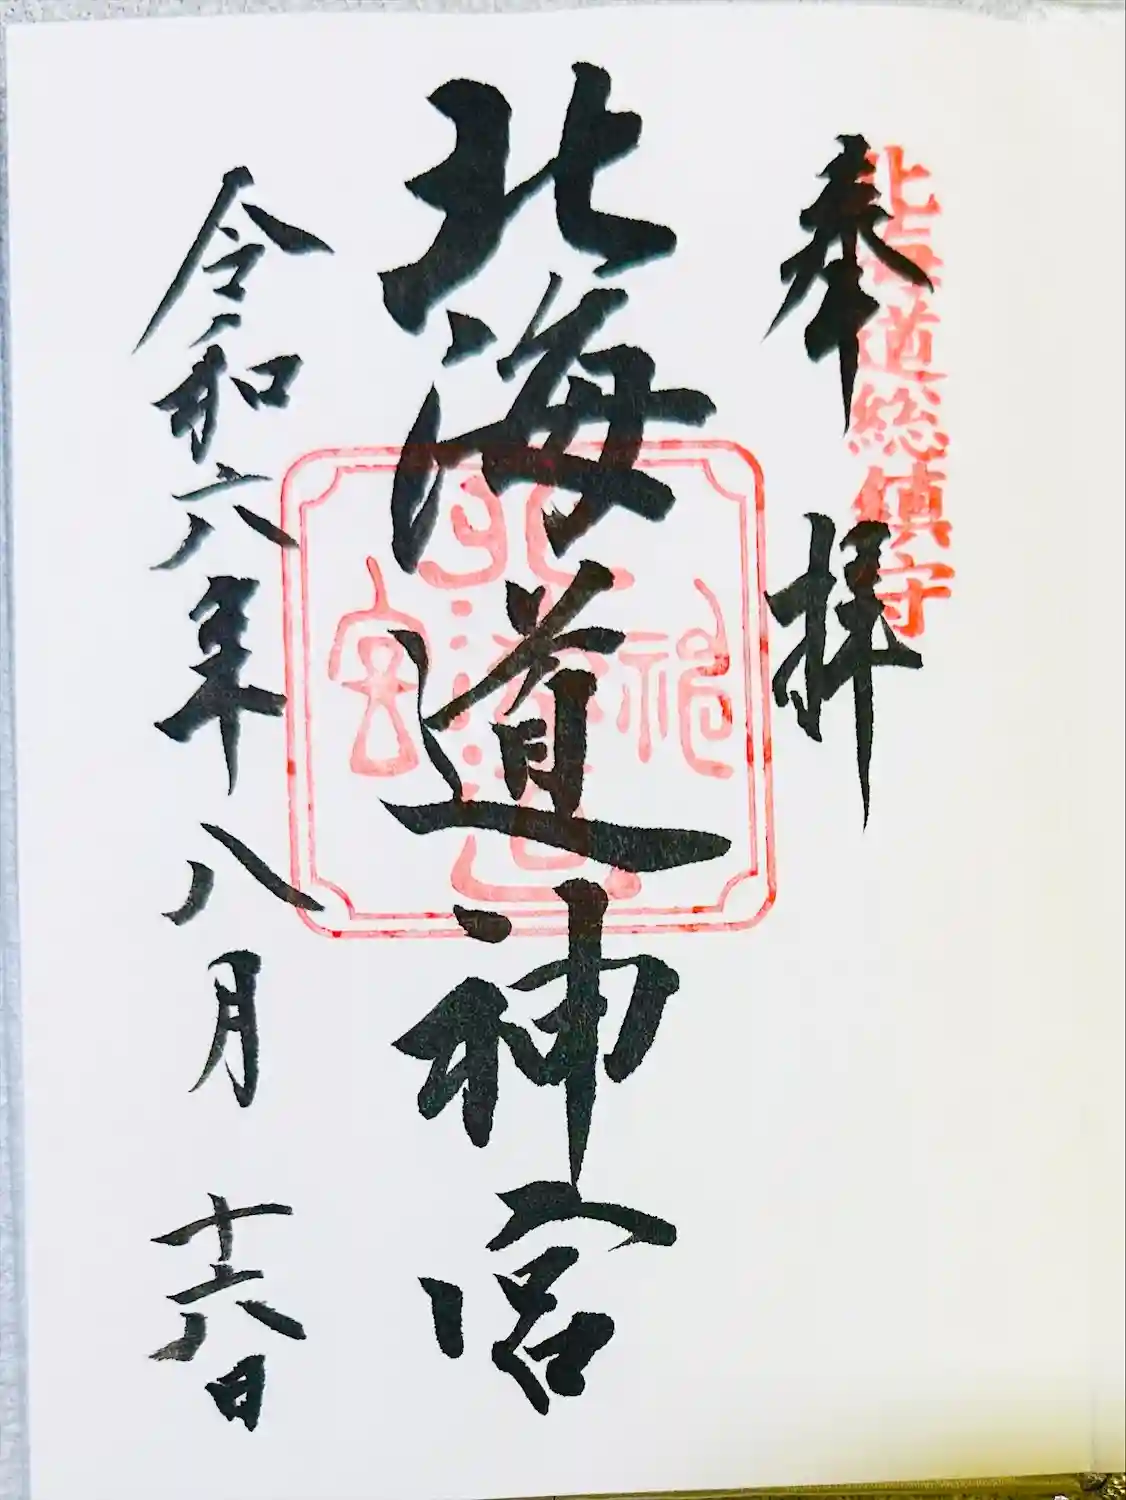 北海道総鎮守
奉拝
北海道神宮
令和六年八月十六日